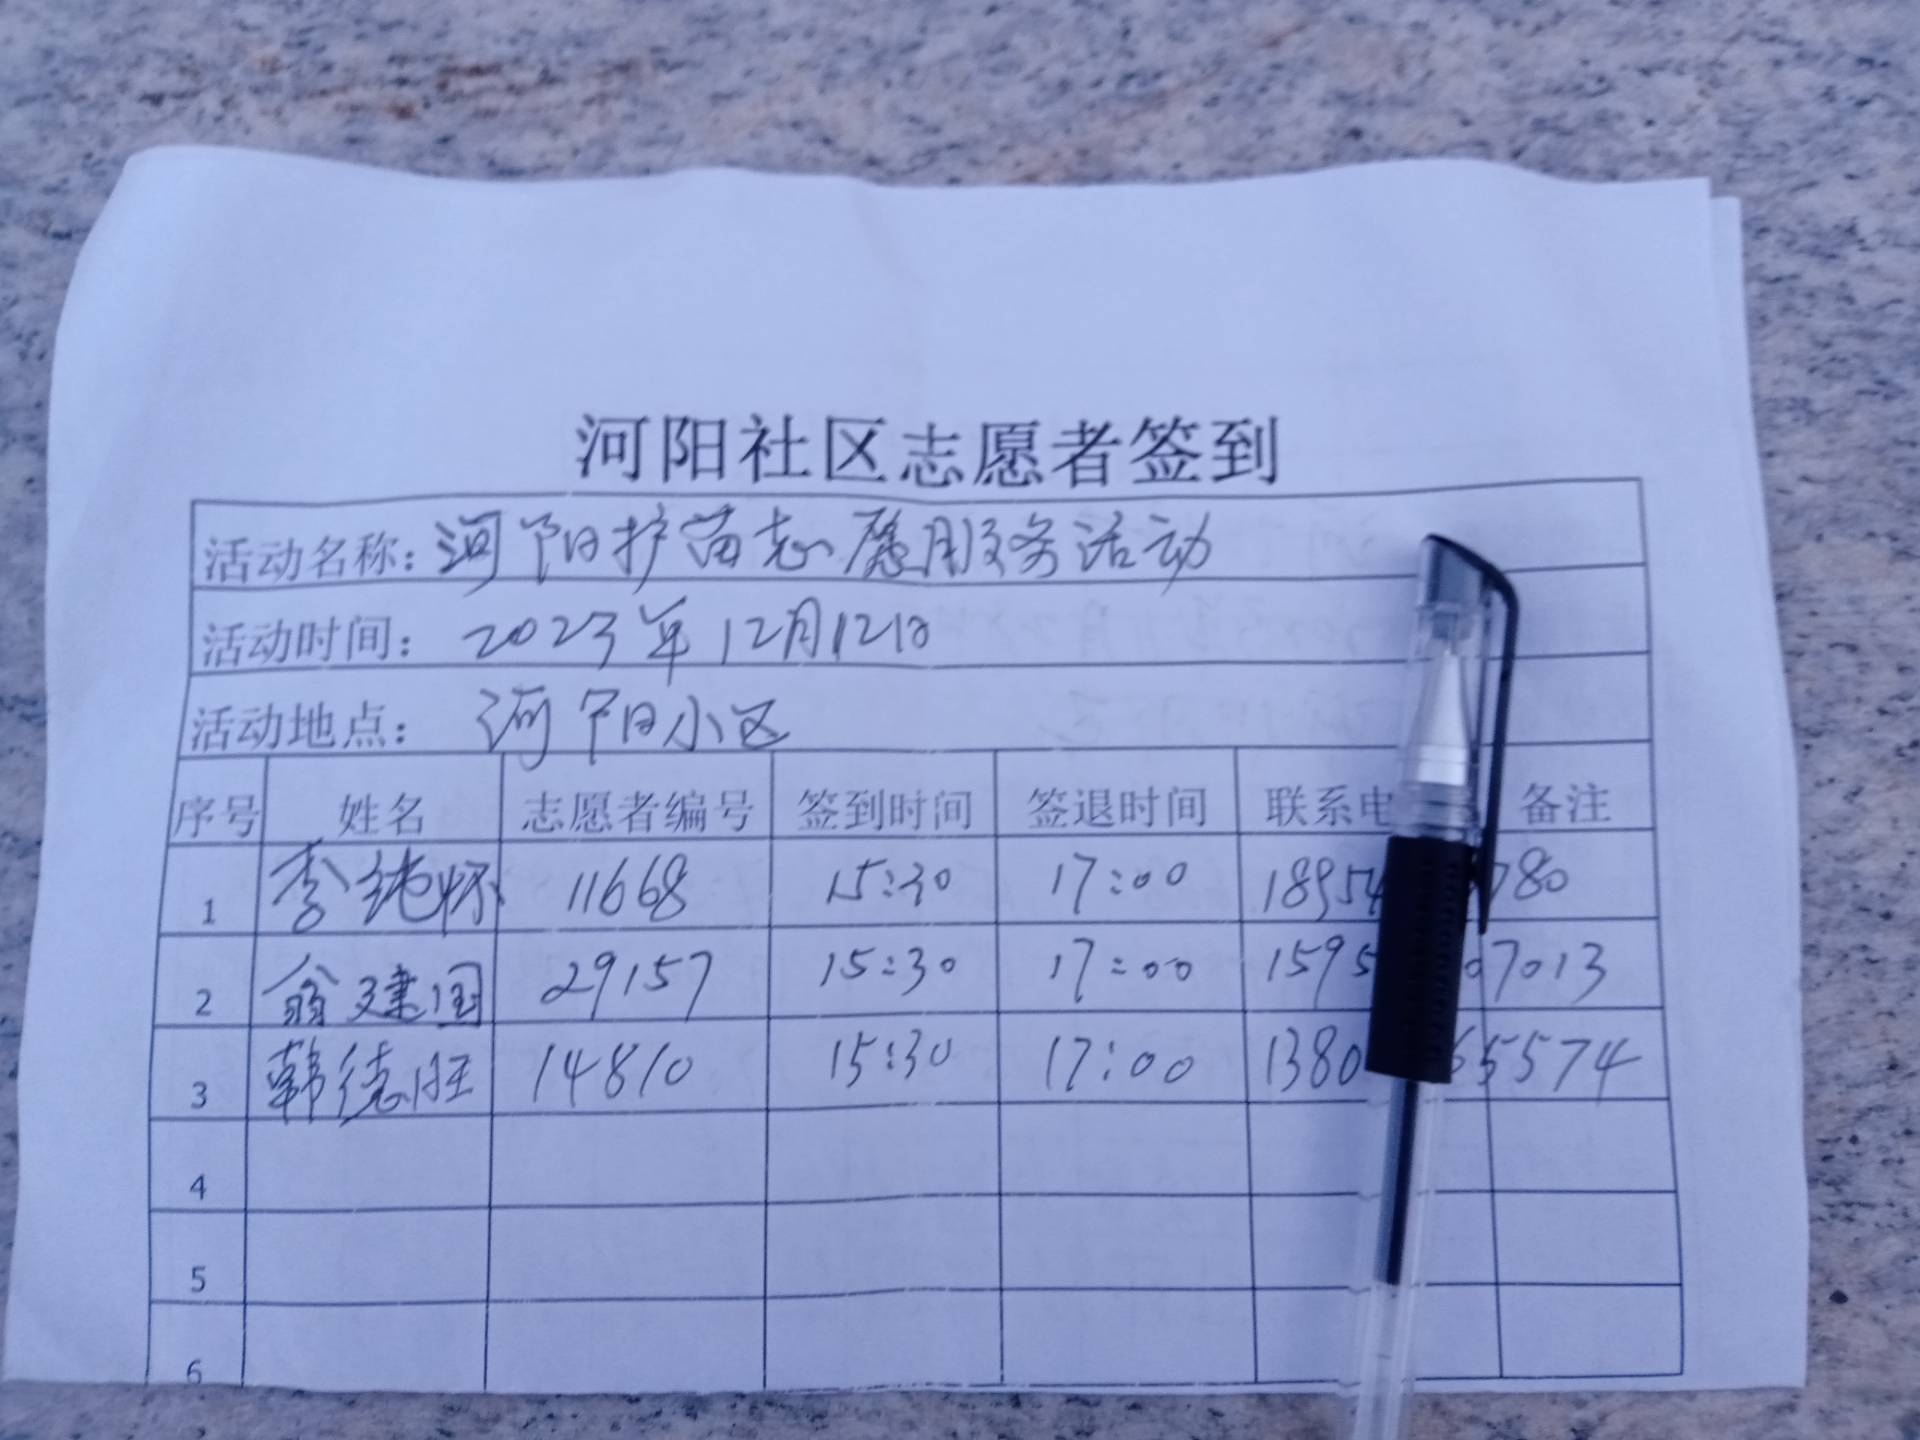 河阳社区志愿者签到
活动名称: 河阳护苗志愿服务活动
活动时间: 2023年12月12日
活动地点: 河阳小区
序号 姓名 志愿者编号 签到时间 签退时间 联系电 备注
1 李纯怀 11668 15:30 17:00 18954 780
2 翁建国 29157 15:30 17:00 1595 07013
3 韩德旺 14810 15:30 17:00 1380 65574
4
5
6